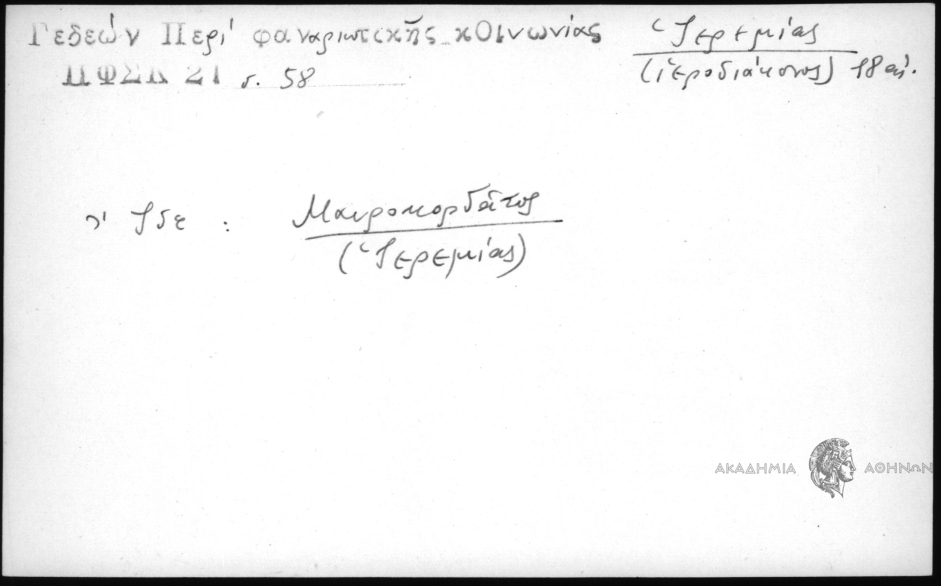 Γεδεών Περί φαναριωτικῆς κοινωνίας
ΠΦΣΚ 21 σ. 58
Ἱερεμίας
(ἱεροδιάκονος) 18 αἰ.
Ἴδε : Μαυροκορδᾶτος
(Ἱερεμίας)
ΑΚΑΔΗΜΙΑ ΑΘΗΝΩΝ